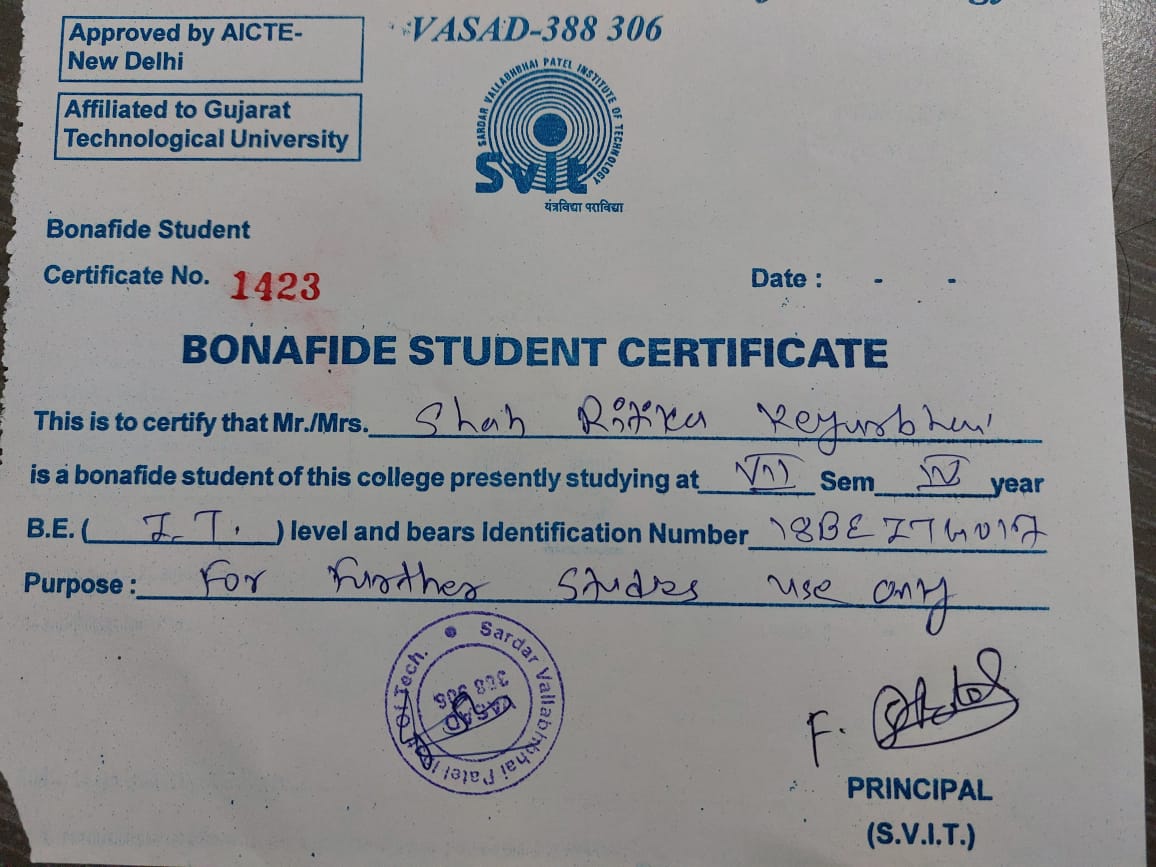 Approved by AICTE-
New Delhi
VASAD-388 306
Affiliated to Gujarat
Technological University
SARDAR VALLABHBHAI PATEL INSTITUTE OF TECHNOLOGY
Svit
यंत्रविद्या पराविद्या
Bonafide Student
Certificate No. 1423
Date : - -
BONAFIDE STUDENT CERTIFICATE
This is to certify that Mr./Mrs. Shah Ritika Keyurbhai
is a bonafide student of this college presently studying at VII Sem IV year
B.E. ( I.T. ) level and bears Identification Number 18BEITG017
Purpose : For Further Studies use only
Sardar Vallabhbhai Patel Inst. Of Tech.
VASAD
388 306
F.
PRINCIPAL
(S.V.I.T.)